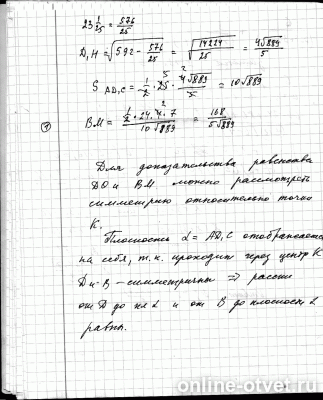 23 1/25 = 576/25
D₁H = √(592 - 576/25) = √(14224/25) = 4√889/5
S AD₁C = 1/2 · 25 · 4√889/5 = 10√889
BM = 1/2 · 24 · 4 · 7 / 10√889 = 168/5√889
Для доказательства равенства
DO и BM можно рассмотреть
симметрию относительно точки
K.
Плоскость α = AD₁C отображается
на себя, т.к. проходит через центр K
D и B - симметричны ⇒ рассто
от D до пл α и от B до плоскость α
равны.
online-otvet.ru